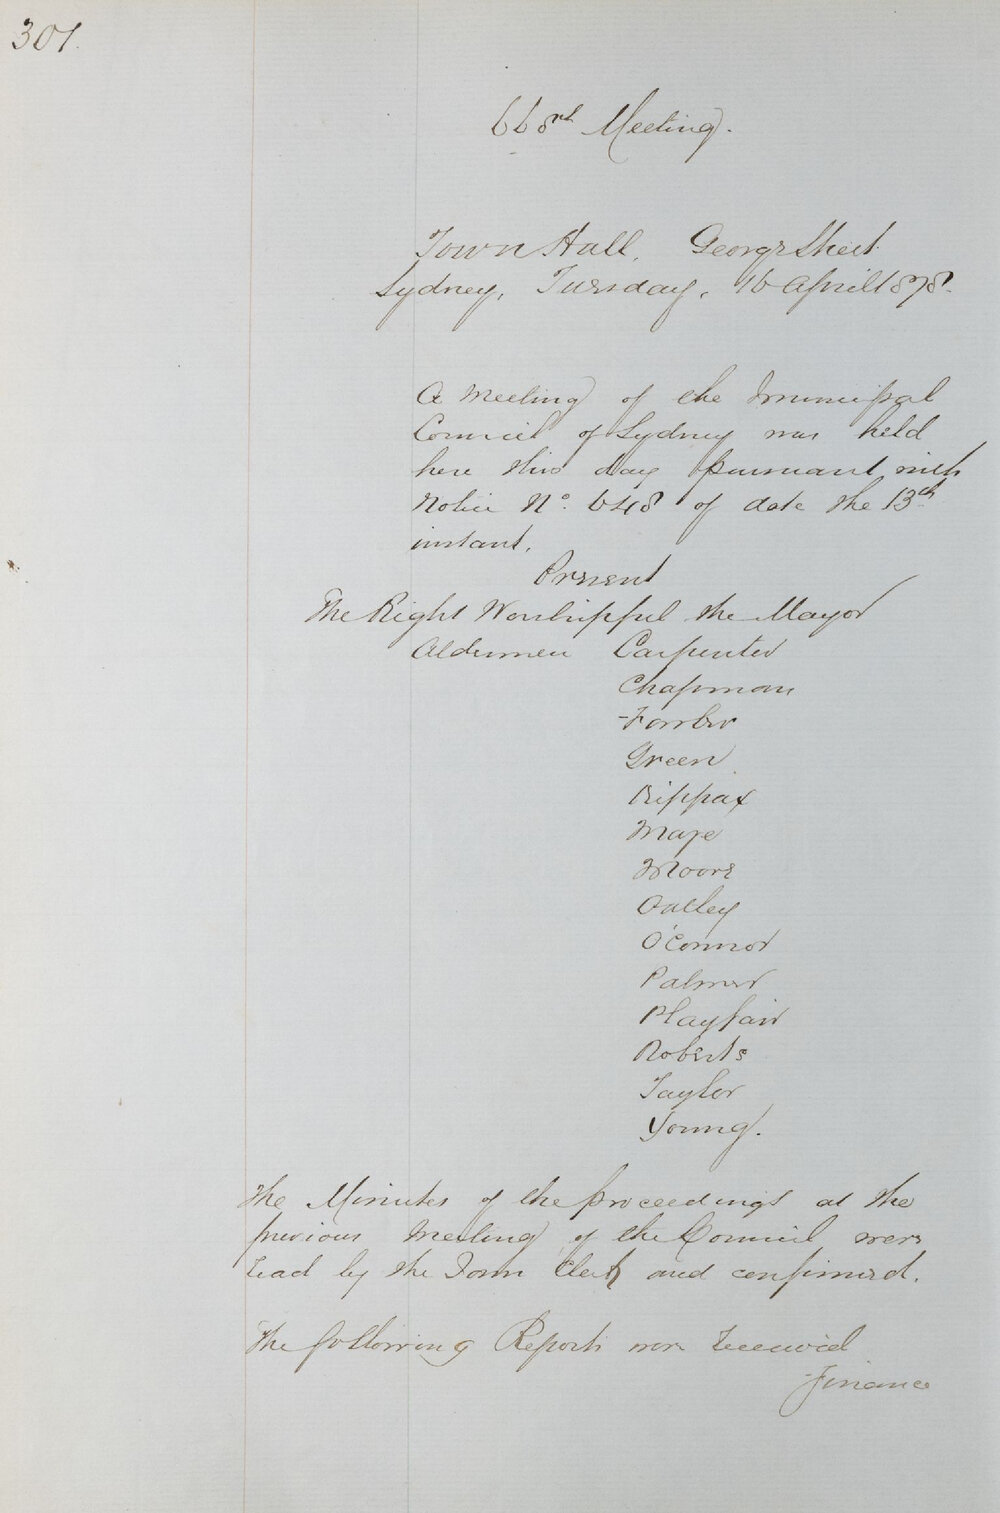 301.
668rd Meeting.
Town Hall, George Street
Sydney, Tuesday, 16 April 1878.
A Meeting of the Municipal
Council of Sydney was held
here this day pursuant with
Notice No. 648 of date the 13th
instant.
Present
The Right Worshipful the Mayor
Aldermen Carpenter
Chapman
Fowler
Green
Kippax
Maze
Moore
Oatley
O'Connor
Palmer
Playfair
Roberts
Taylor
Young.
The Minutes of the proceedings at the
previous Meeting of the Council were
read by the Town Clerk and confirmed.
The following Reports were received
Finance